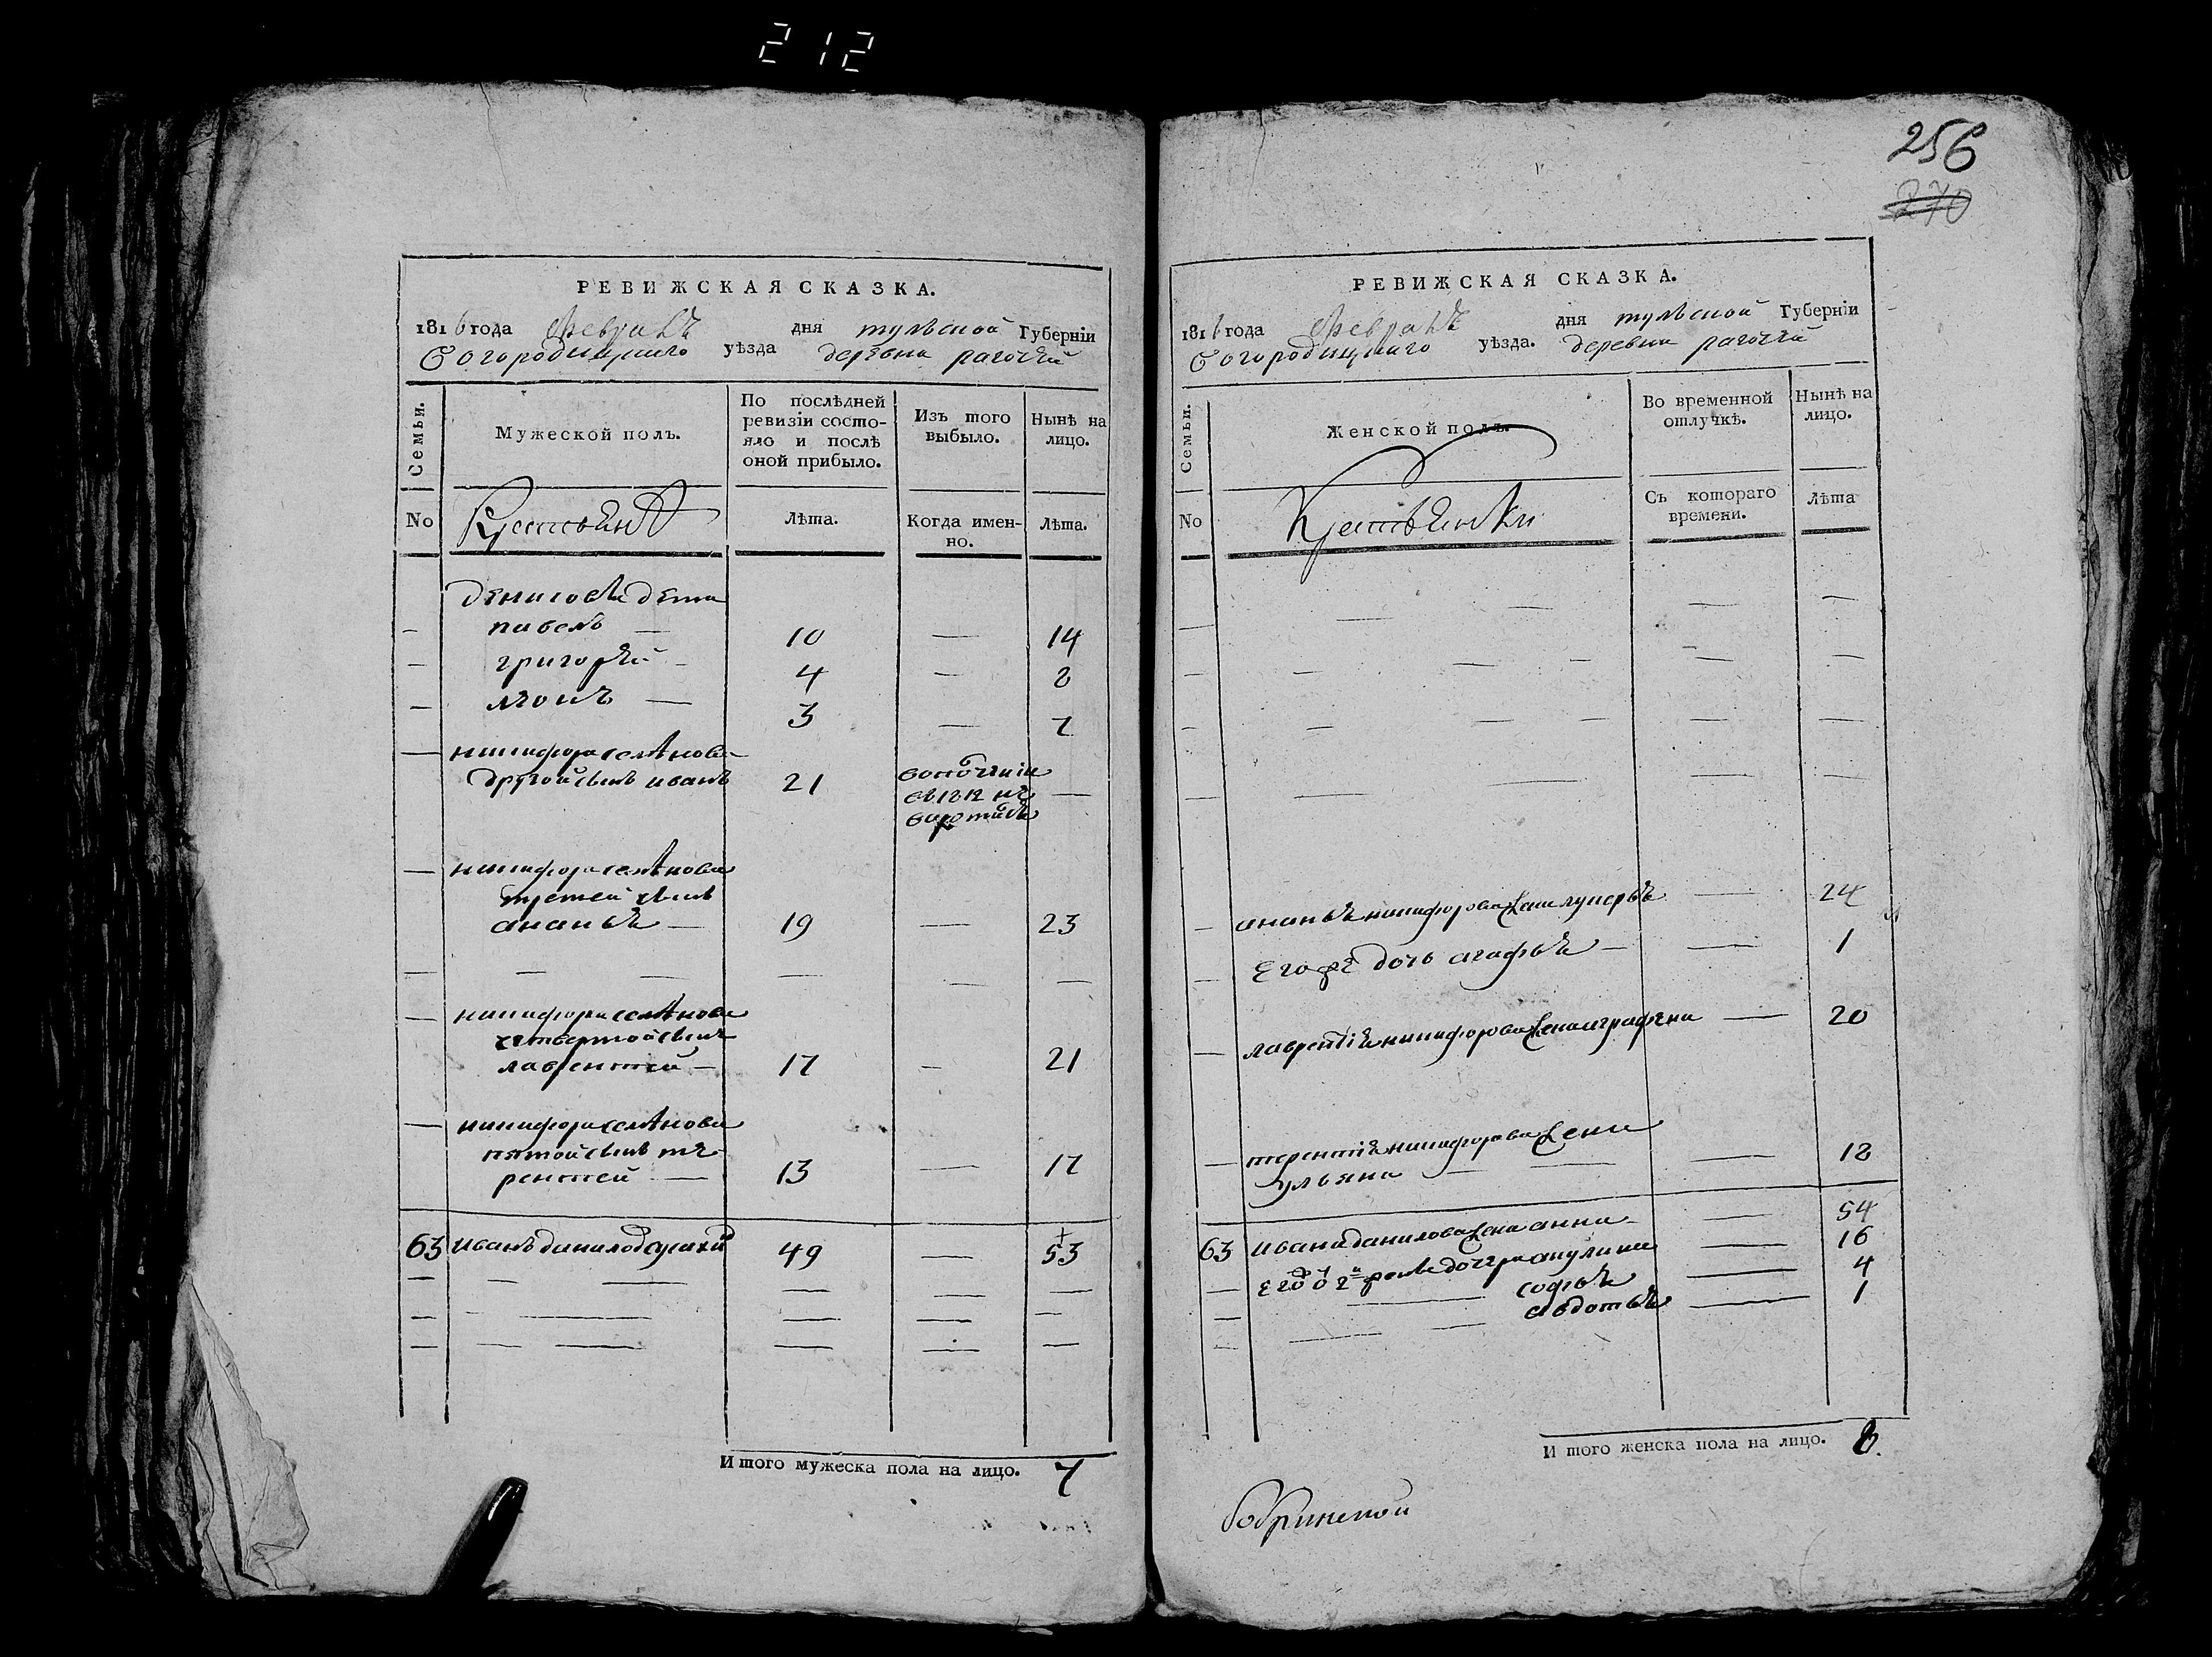 212
256
270
РЕВИЖСКАЯ СКАЗКА.
1816 года февраля дня тульской Губерніи
богородицкаго уѣзда деревни
Семьи.
Мужеской полъ.
По послѣдней
ревизіи состо-
яло и послѣ
оной прибыло.
Изъ того
выбыло.
Нынѣ на
лицо.
No
Крестьяня
Лѣта.
Когда имен-
но.
Лѣта.
денисовы дети
павелъ — 10 — 14
григорей — 4 — 8
3 — 7
никифора семенова
другой сынъ иванъ 21 —
в ополчении
въ 1812 не
никифора семенова
третей сынъ
ананья — 19 — 23
никифора семенова
четвертой сынъ
лаврентей — 17 — 21
никифора семенова
пятой сынъ те
рентей — 13 — 17
63 иванъ данилов 49 — 53
Итого мужеска пола на лицо. 7
РЕВИЖСКАЯ СКАЗКА.
1816 года февраля дня тульской Губерніи
богородицкаго уѣзда. деревни
Семьи.
Женской полъ.
Во временной
отлучкѣ.
Нынѣ на
лицо.
No
Крестьянки
Съ котораго
времени.
Лѣта
ананья никифорова жена лукерья — 24
его же дочь агафья — — 1
лаврентія никифорова жена аграфена — 20
терентія никифорова жена
ульяна — — — 18
63 ивана данилова жена анна — — 54
его 2й жены дочери акулина — 16
софья — 4
авдотья — 1
И того женска пола на лицо. 8.
Бобринской